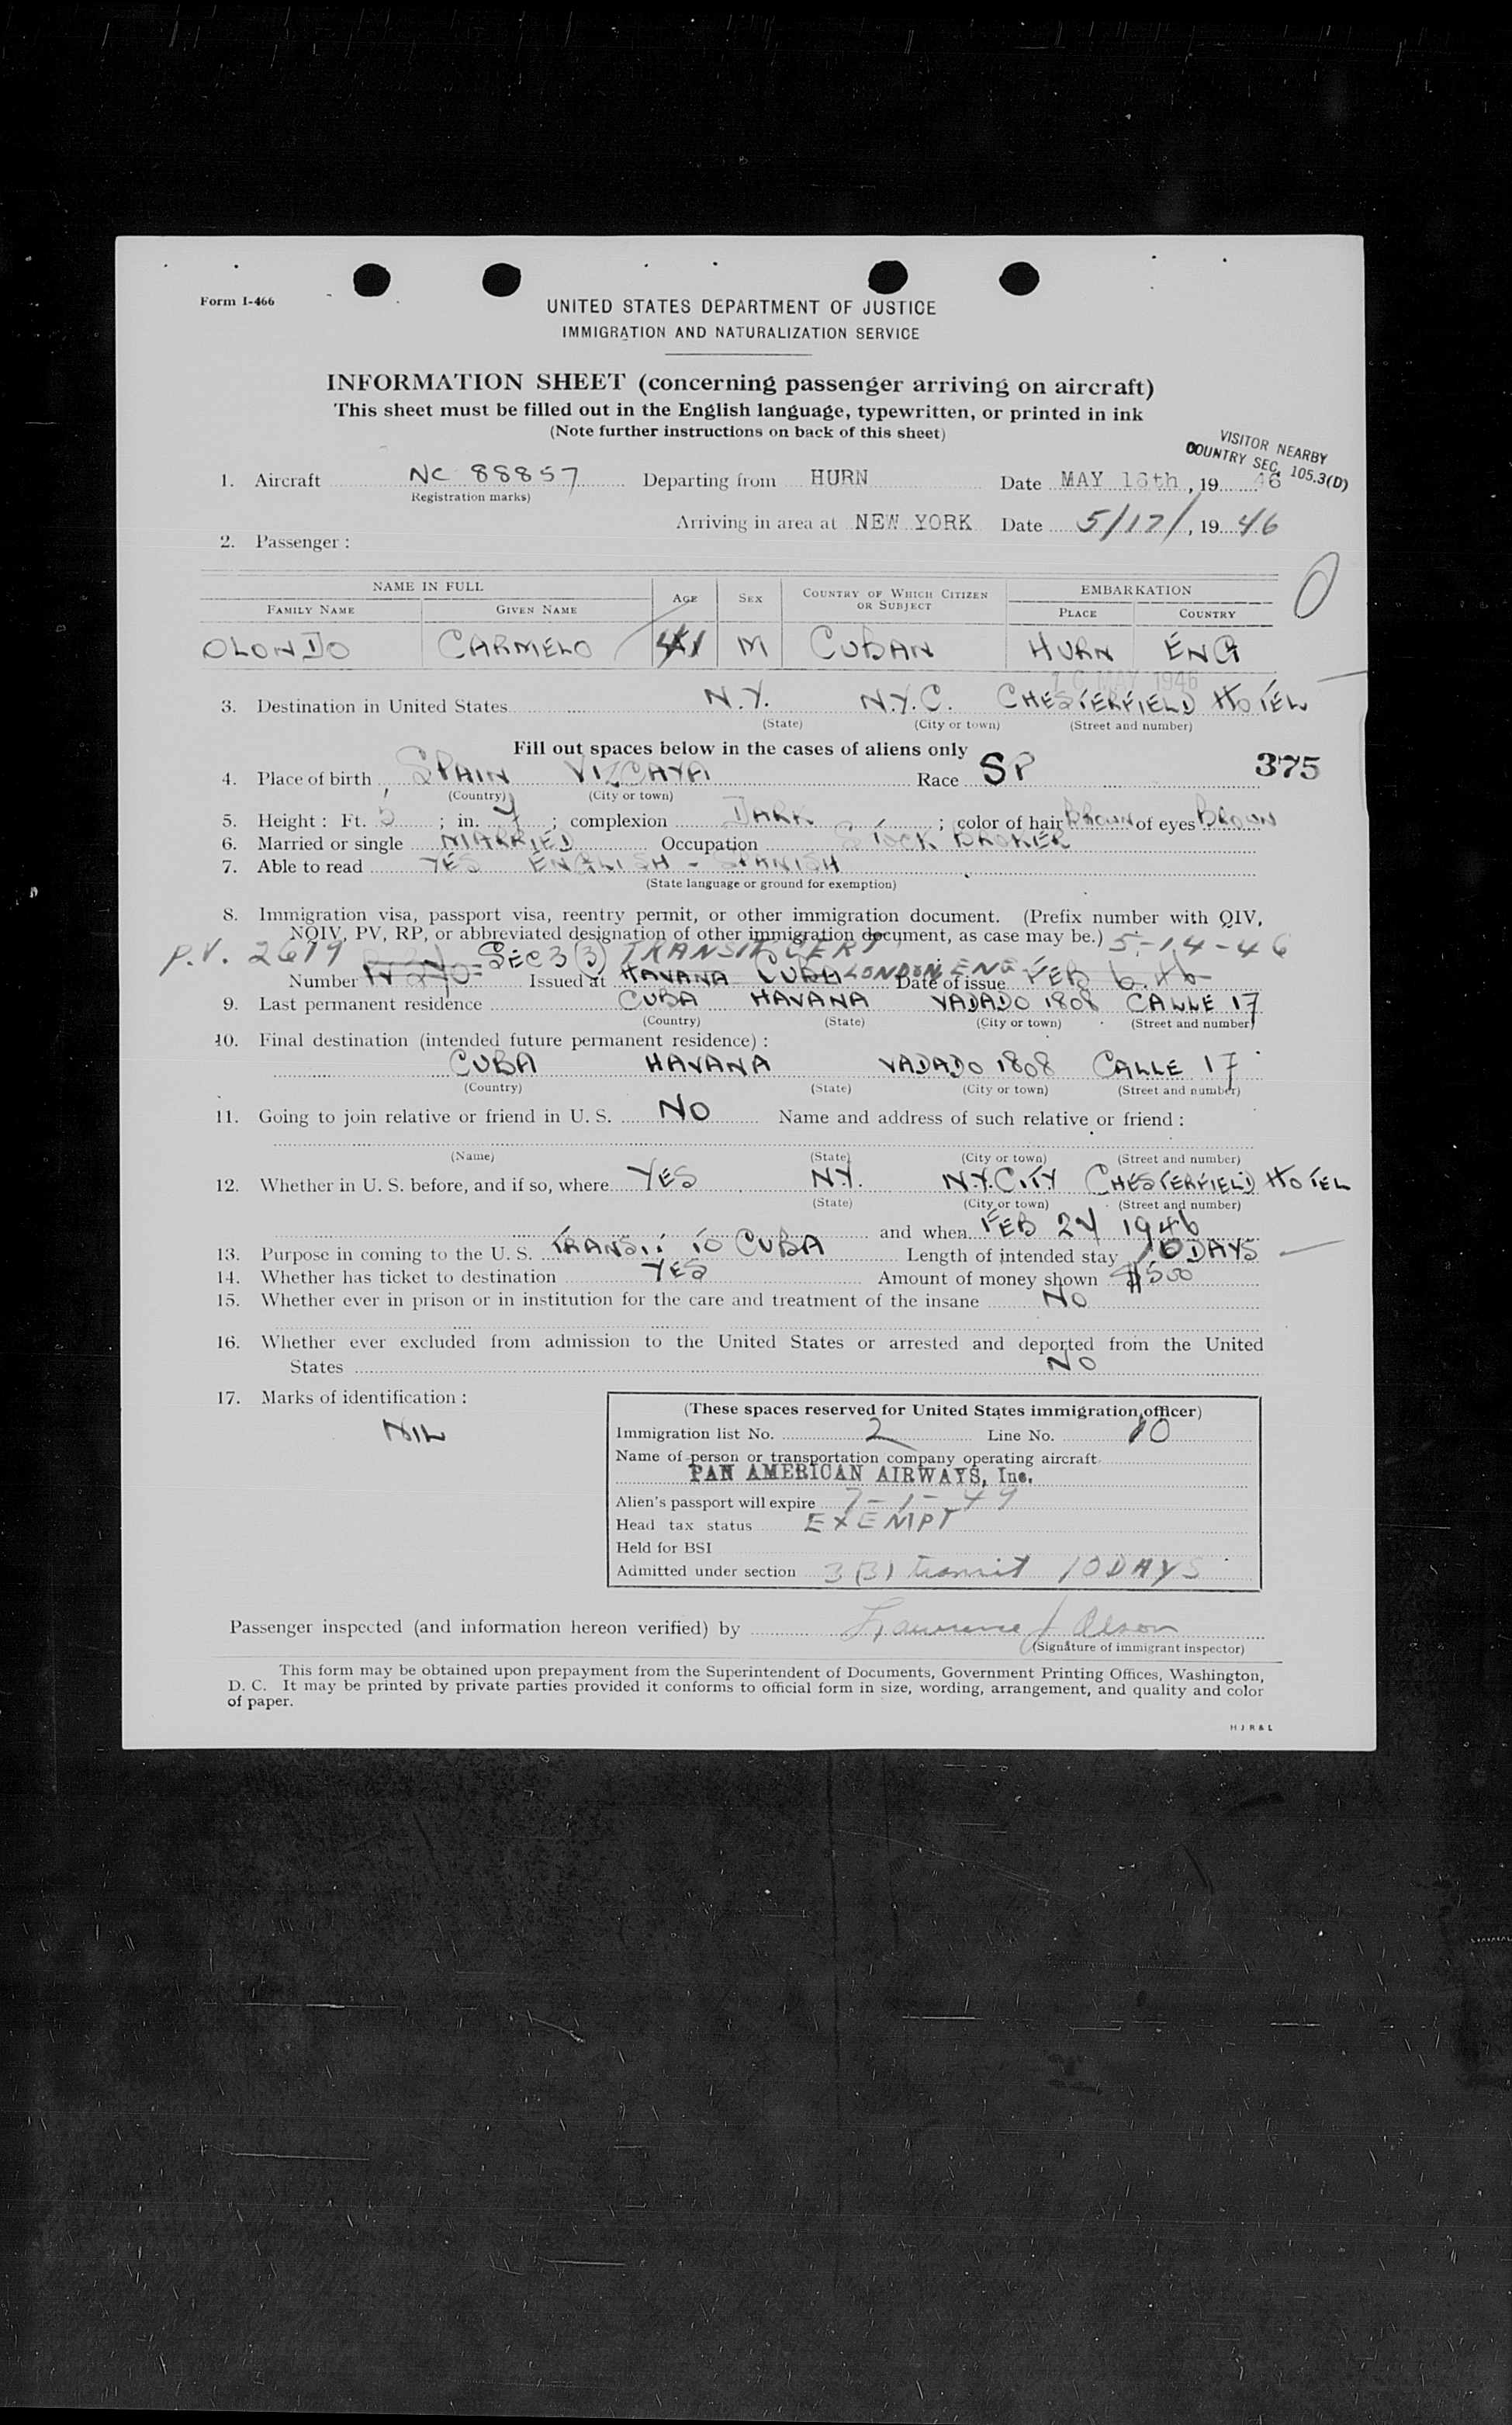 Form I-466
UNITED STATES DEPARTMENT OF JUSTICE
IMMIGRATION AND NATURALIZATION SERVICE
INFORMATION SHEET (concerning passenger arriving on aircraft)
This sheet must be filled out in the English language, typewritten, or printed in ink
(Note further instructions on back of this sheet)
VISITOR NEARBY
COUNTRY SEC. 105.3(D)
1. Aircraft NC 88857 Departing from HURN Date MAY 16th, 19 46
(Registration marks)
Arriving in area at NEW YORK Date 5/17/, 19 46
2. Passenger:
NAME IN FULL AGE SEX COUNTRY OF WHICH CITIZEN OR SUBJECT EMBARKATION
FAMILY NAME GIVEN NAME PLACE COUNTRY
OLONDO CARMELO 41 M CUBAN HURN ENG
MAY 1946
3. Destination in United States N.Y. N.Y.C. CHESTERFIELD HOTEL
(State) (City or town) (Street and number)
Fill out spaces below in the cases of aliens only
4. Place of birth SPAIN VIZCAYA Race SP 375
(Country) (City or town)
5. Height: Ft. 5; in. 4; complexion DARK; color of hair BROWN of eyes BROWN
6. Married or single MARRIED Occupation STOCK BROKER
7. Able to read YES ENGLISH - SPANISH
(State language or ground for exemption)
8. Immigration visa, passport visa, reentry permit, or other immigration document. (Prefix number with QIV,
NQIV, PV, RP, or abbreviated designation of other immigration document, as case may be.) 5-14-46
P.V. 2619 SEC 3(3) TRANSIT CERT
Number Issued at HAVANA CUBA LONDON ENG Date of issue FEB 6.46
9. Last permanent residence CUBA HAVANA VADADO 1808 CALLE 17
(Country) (State) (City or town) (Street and number)
10. Final destination (intended future permanent residence):
CUBA HAVANA VADADO 1808 CALLE 17
(Country) (State) (City or town) (Street and number)
11. Going to join relative or friend in U. S. NO Name and address of such relative or friend:
(Name) (State) (City or town) (Street and number)
12. Whether in U. S. before, and if so, where YES N.Y. N.Y.CITY CHESTERFIELD HOTEL
(State) (City or town) (Street and number)
and when FEB 24 1946
13. Purpose in coming to the U. S. TRANSIT TO CUBA Length of intended stay 10 DAYS
14. Whether has ticket to destination YES Amount of money shown $500
15. Whether ever in prison or in institution for the care and treatment of the insane NO
16. Whether ever excluded from admission to the United States or arrested and deported from the United
States NO
17. Marks of identification:
NIL
(These spaces reserved for United States immigration officer)
Immigration list No. 2 Line No. 10
Name of person or transportation company operating aircraft
PAN AMERICAN AIRWAYS, Inc.
Alien's passport will expire 7-1-49
Head tax status EXEMPT
Held for BSI
Admitted under section 3(3) transit 10 DAYS
Passenger inspected (and information hereon verified) by Lawrence J Olson
(Signature of immigrant inspector)
This form may be obtained upon prepayment from the Superintendent of Documents, Government Printing Offices, Washington,
D. C. It may be printed by private parties provided it conforms to official form in size, wording, arrangement, and quality and color
of paper.
H J R & L